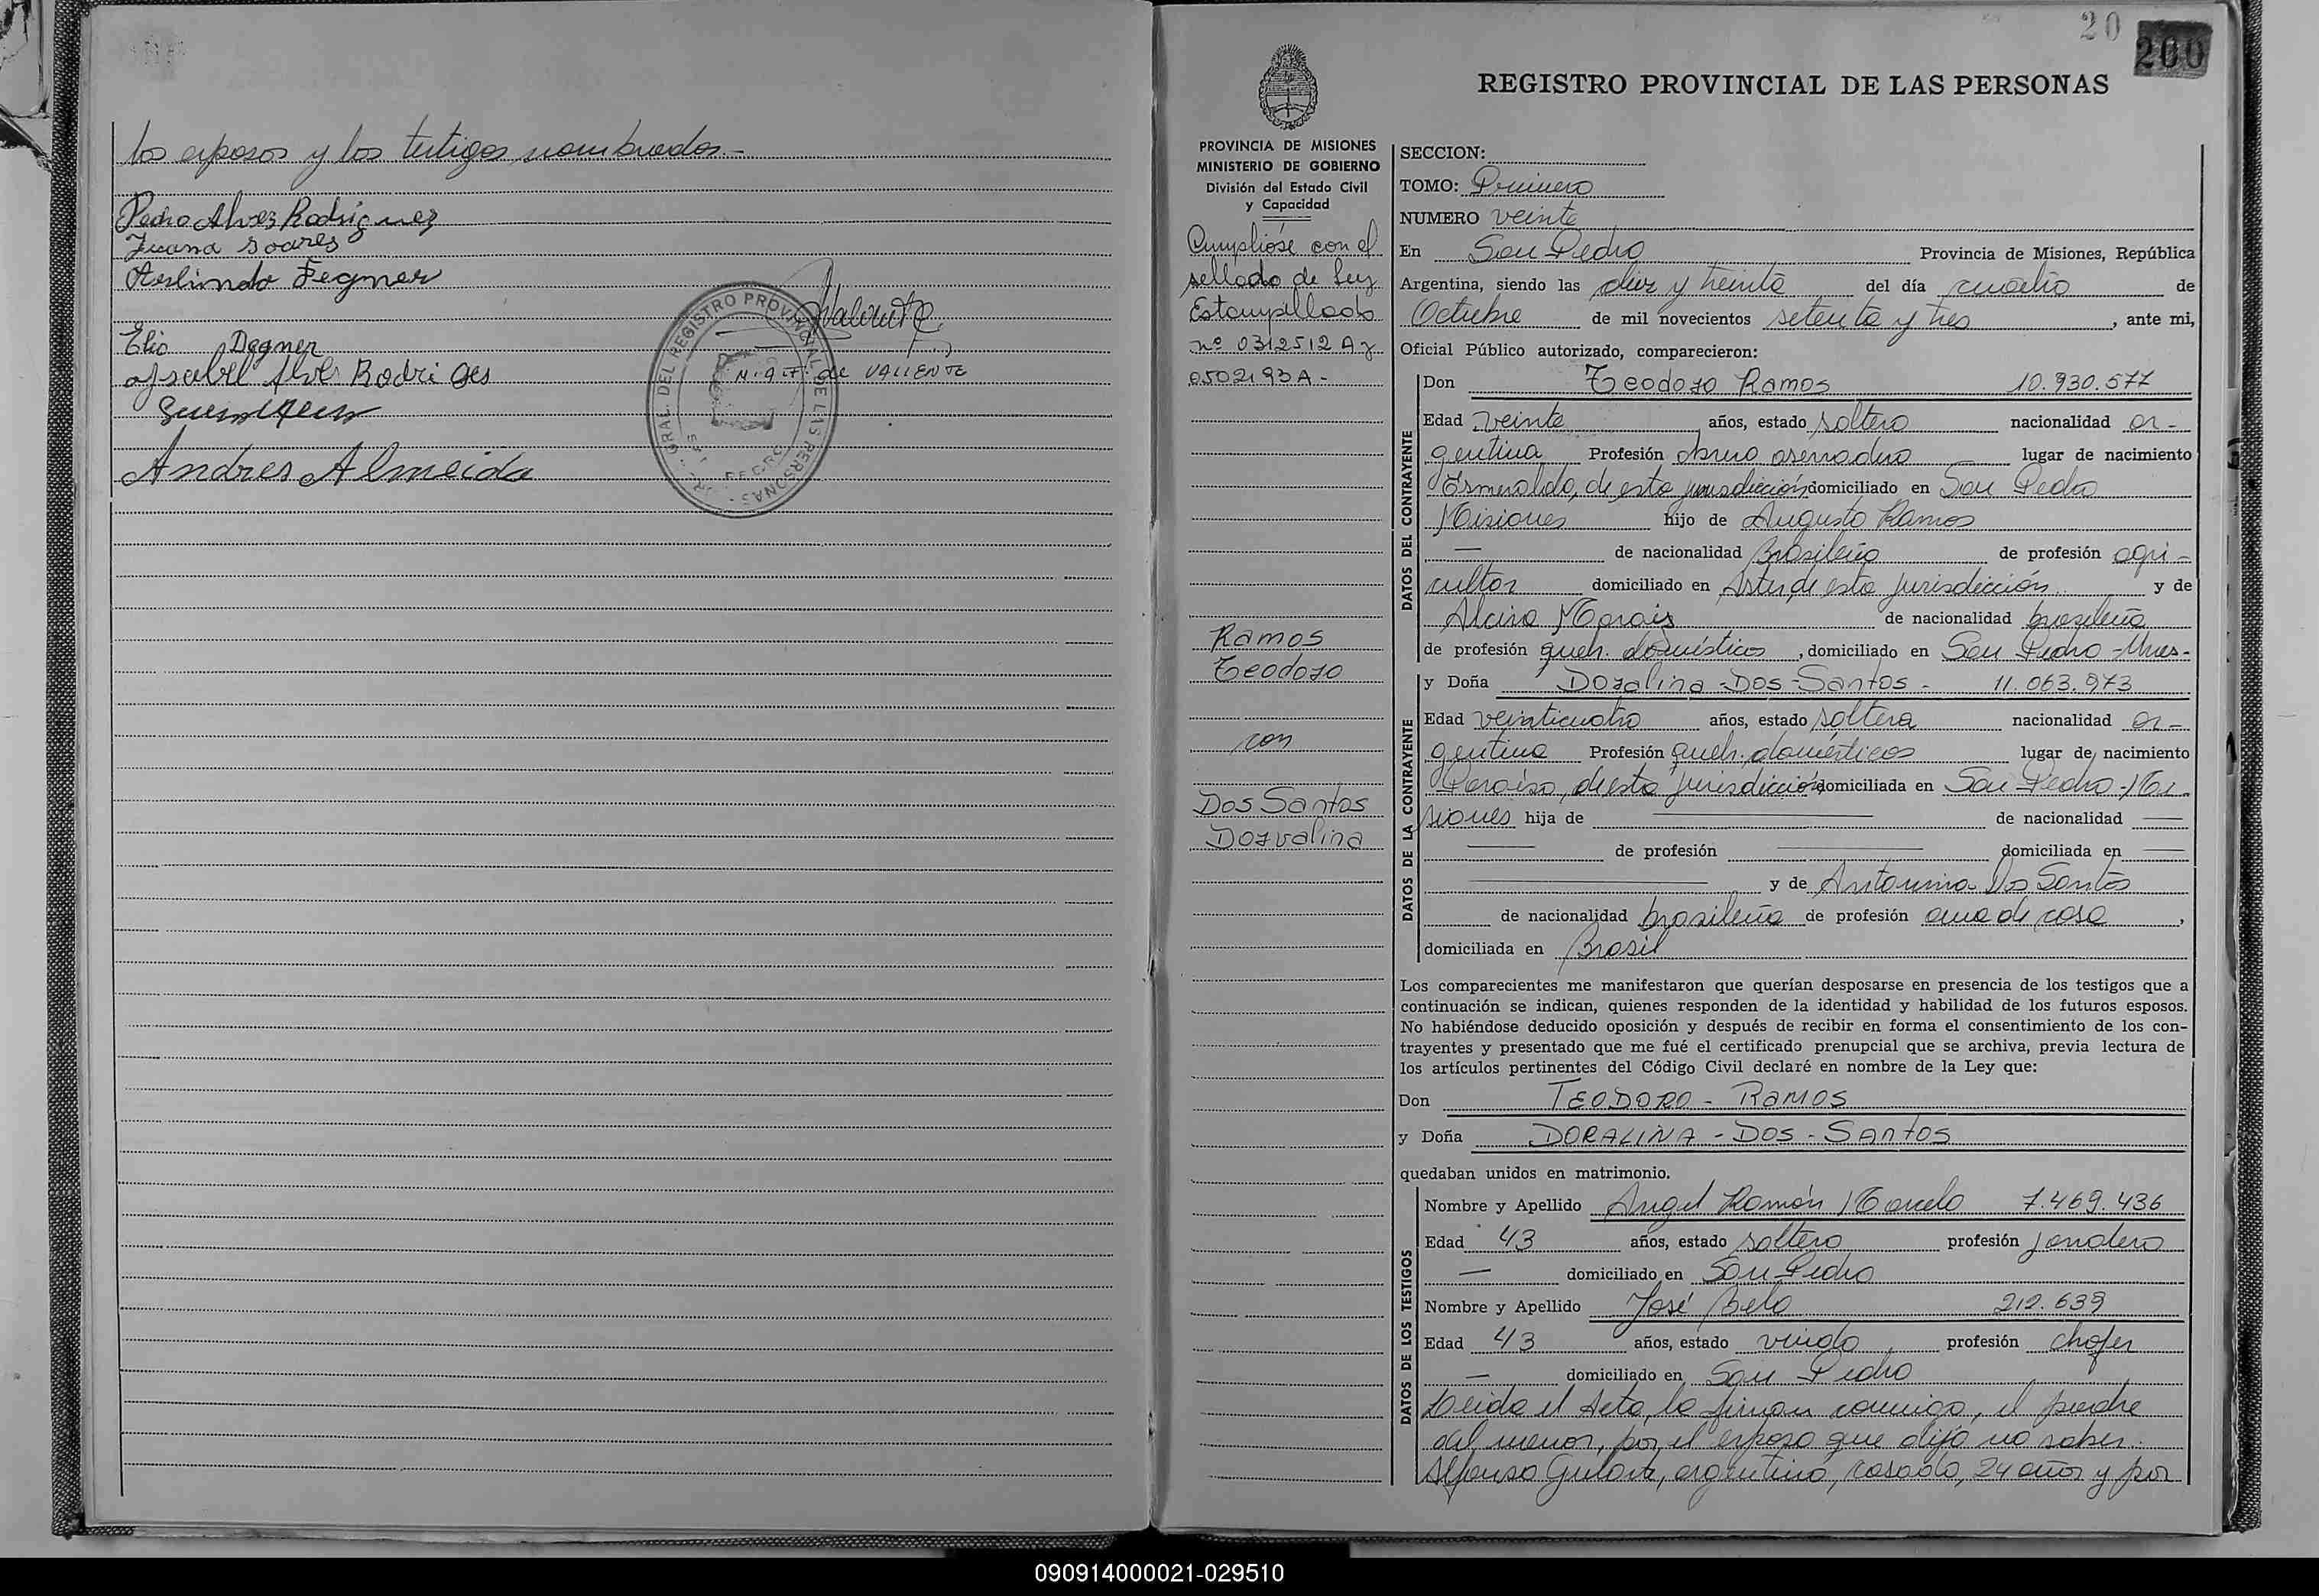 los esposos y los testigos nombrados.-
Pedro Alvez Rodriguez
Juana Soares
Arlindo Fegner
Elio Degner
Isabel Alves Rodriges
Andres Almeida
M. A. F. de VALIENTE
GRAL. DEL REGISTRO PROVINCIAL DE LAS PERSONAS
20
200
REGISTRO PROVINCIAL DE LAS PERSONAS
PROVINCIA DE MISIONES
MINISTERIO DE GOBIERNO
División del Estado Civil
y Capacidad
Cumplióse con el
sellado de Ley
Estampillado
nº 0312512 A y
0502193 A -
Ramos
Teodoro
con
Dos Santos
Dorvalina
SECCION:
TOMO: Primero
NUMERO veinte
En San Pedro Provincia de Misiones, República
Argentina, siendo las diez y treinta del día cuatro de
Octubre de mil novecientos setenta y tres, ante mi,
Oficial Público autorizado, comparecieron:
DATOS DEL CONTRAYENTE
Don Teodoro Ramos 10.930.577
Edad veinte años, estado soltero nacionalidad ar-
gentina Profesión obrero aserradero lugar de nacimiento
Esmeralda, de esta jurisdicción domiciliado en San Pedro
Misiones hijo de Augusto Ramos
— de nacionalidad Brasileña de profesión agri-
cultor domiciliado en de esta jurisdicción y de
Alcira Morais de nacionalidad brasileña
de profesión queh. domésticos, domiciliado en San Pedro - Mnes-
DATOS DE LA CONTRAYENTE
y Doña Doralina - Dos - Santos - 11.063.973
Edad veinticuatro años, estado soltera nacionalidad ar-
gentina Profesión queh. domésticos lugar de nacimiento
Paraiso, de esta jurisdicción domiciliada en San Pedro - Mi-
siones hija de — de nacionalidad —
— de profesión — domiciliada en —
— y de Antonina Dos Santos
de nacionalidad brasileña de profesión ama de casa,
domiciliada en Brasil
Los comparecientes me manifestaron que querían desposarse en presencia de los testigos que a
continuación se indican, quienes responden de la identidad y habilidad de los futuros esposos.
No habiéndose deducido oposición y después de recibir en forma el consentimiento de los con-
trayentes y presentado que me fué el certificado prenupcial que se archiva, previa lectura de
los artículos pertinentes del Código Civil declaré en nombre de la Ley que:
Don TEODORO - RAMOS
y Doña DORALINA - DOS - SANTOS
quedaban unidos en matrimonio.
DATOS DE LOS TESTIGOS
Nombre y Apellido Angel Ramón 7.469.436
Edad 43 años, estado soltero profesión jornalero
— domiciliado en San Pedro
Nombre y Apellido José Belo 212.639
Edad 43 años, estado viudo profesión chofer
— domiciliado en San Pedro
Leida el Acta, la firman conmigo, el padre
del menor, por el esposo que dijo no saber
Alfonso Gularte, argentino, casado, 24 años y por
090914000021-029510